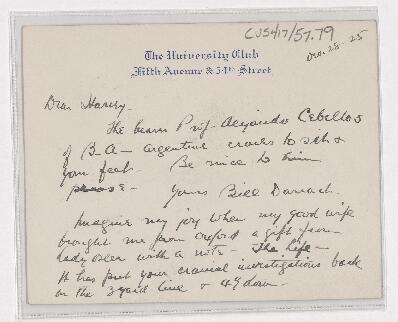 CUS417/57.79
Dec. 28. 25
The University Club
Fifth Avenue & 54th Street
Dear Harvey-
The bearer Prof. Alejandro Ceballos
of B.A - Argentine craves to sit at
your feet. Be nice to him
please - Yours Bill Darrach.
Imagine my joy when my good wife
brought me from Oxford a gift from
Lady Osler with a note - The Life -
It has put your cranial investigations back
on the 3 yard line & 4th down.